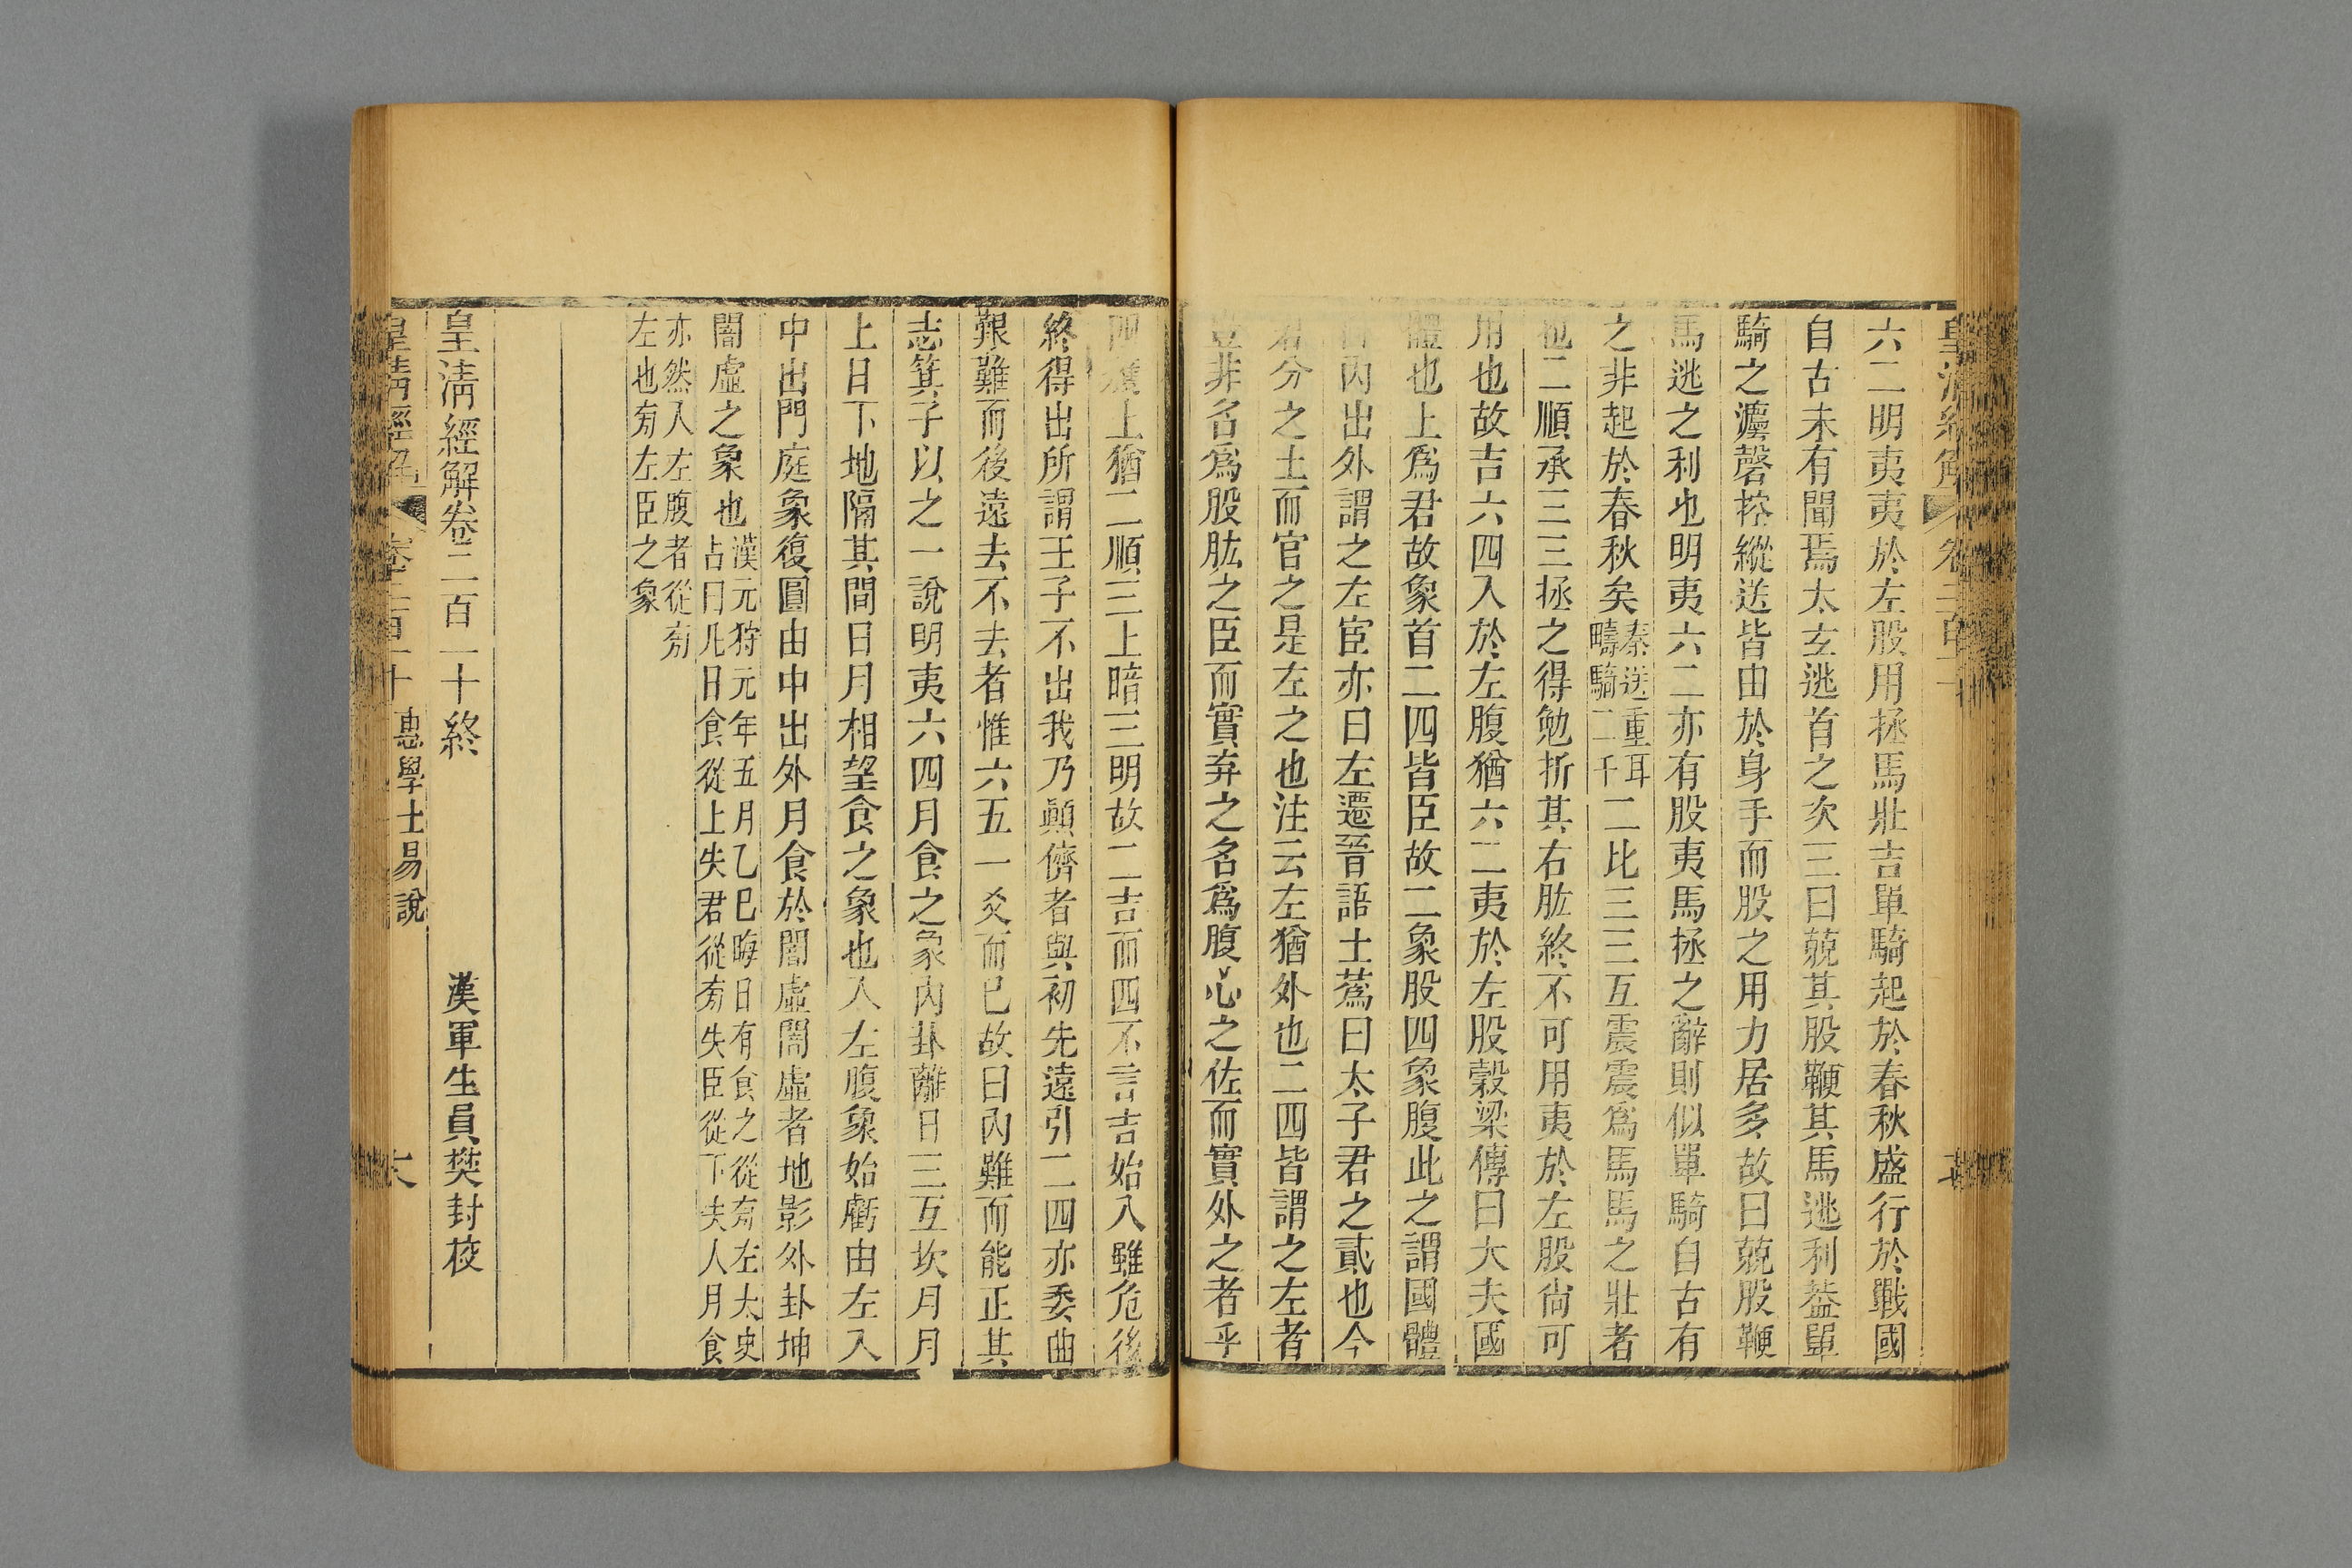 六二明夷夷於左股用拯馬壯吉單騎起於春秋盛行於戰國
自古未有聞焉太玄逃首之次三曰兢其股鞭其馬逃利葢單
騎之灋磬控縱送皆由於身手而股之用力居多故曰兢股鞭
馬逃之利也明夷六二亦有股夷馬拯之辭則似單騎自古有
之非起於春秋矣秦送重耳疇騎二千二比三三互震震爲馬馬之壯者
也二順承三三拯之得勉折其右肱終不可用夷於左股尙可
用也故吉六四入於左腹猶六二夷於左股穀梁傳曰大夫國
體也上爲君故象首二四皆臣故二象股四象腹此之謂國體
內出外謂之左宦亦曰左遷晉語士蔿曰太子君之貳也今
君分之土而官之是左之也注云左猶外也二四皆謂之左者
豈非名爲股肱之臣而實弃之名爲腹心之佐而實外之者乎
上猶二順三上暗三明故二吉而四不言吉始入雖危後
終得出所謂王子不出我乃顚儕者與初先遠引二四亦委曲
艱難而後遠去不去者惟六五一爻而已故曰內難而能正其
志箕子以之一說明夷六四月食之象內卦離日三互坎月月
上日下地隔其間日月相望食之象也入左腹象始虧由左入
中出門庭象復圓由中出外月食於闇虛闇虛者地影外卦坤
闇虛之象也漢元狩元年五月乙巳晦日有食之從㫄左太史占曰凡日食從上失君從㫄失臣從下失人月食
亦然入左腹者從㫄左也㫄左臣之象
皇清經解卷二百一十終
漢軍生員樊封校
皇清經解
卷二百一十
惠學士易說